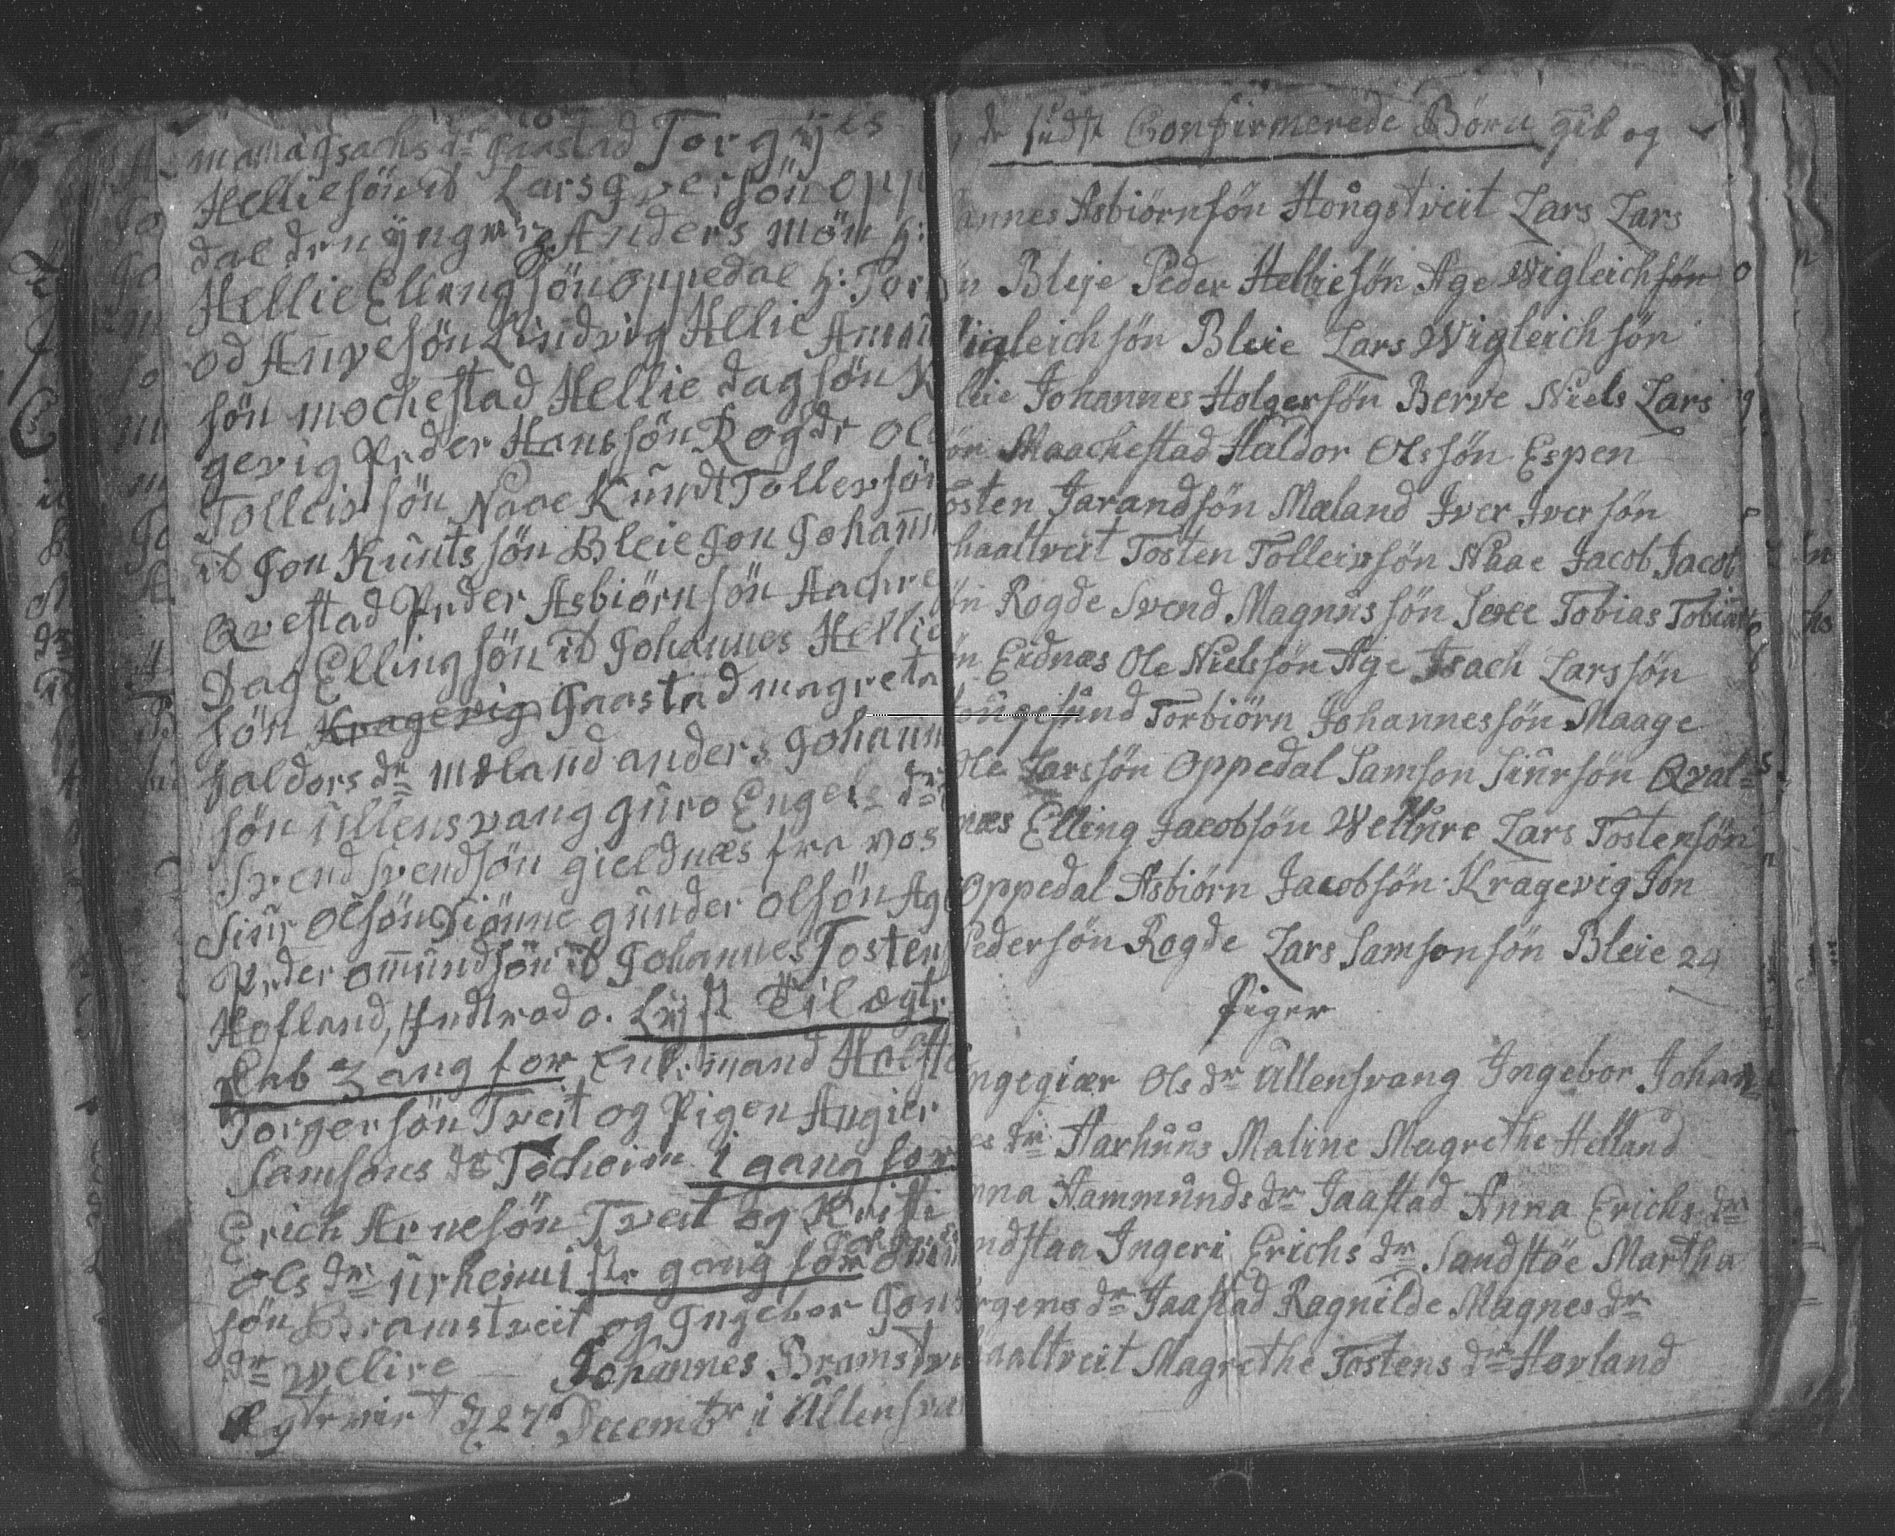 Jaastad Torg
Helliesøn ib Lars Iversøn Opp
dal den ÿngre Anders
Hellie Ellingsøn Oppedal h: Tor
od Anvesøn Lindvig Hellie Amu
søn mochestad Hellie dagsøn K
gevig Peder Hanssøn Rogde Ol
Tolleivsøn Naae Knudt Tollevsøn
ib Jon Knutssøn Bleie Jon Johann
Qvestad Peder Asbiørnsøn Aachre
Dag Ellingsøn ib Johannes Hellie
søn Kragevig Jaastad magreta
Haldors dr mæland anders Johann
søn ullensvang guro Engels dr
Svend svendsøn gieldnæs fra vos
siur olsøn Diønne gunder olsøn Age
Peder omundsøn ib Johannes Tosten
Hofland, Indtrod o. Lyst til ægte
skab 3 gang for Enkemand
Torgersøn Tveit og Pigen Angier
samsons dr Tocheim 1 gang for
Erich Arnesøn Tveit og Kristi
ols dr urheim 1ste gang for
søn Bramstveit og Ingebor Jon
dr velire Johannes Bramstve
Ægtevviet d 27 Decembr i Ullensva
de sidste Confirmerede Børn gik og
annes Asbiørnsøn Hongstveit Lars Lars
øn Bleje Peder Helliesøn Age Wigleichsøn
Wigleichsøn Bleie Lars Wigleichsøn
leie Johannes Holgersøn Berve Niels Lars
søn Maachestad Haldor Olssøn Espen
osten Jarandsøn Mæland Iver Iversøn
haaltveit Tosten Tolleivsøn Naae Jacob Jacob
søn Rogde Svend Magnussøn Sexe Tobias Tobias
øn Eidnæs Ole Nielssøn Age Isach Larssøn
ougesund Torbiørn Johannessøn Maage
Ole Larssøn Oppedal Samson Siursøn Qval=
næs Elling Jacobsøn Wellure Lars Tostensøn
Oppedal Asbiørn Jacobsøn Kragevig Jon
Pedersøn Rogde Lars Samsonsøn Bleie 24
Piger
ngegiær Ols dr Ullensvang Ingebor Johan-
es dr Aarhuus Maline Magrethe Helland
nna Aammunds dr Jaastad Anna Erichs dr
ndstaa Ingeri Erichs dr Sandstøe Martha
rgens dr Jaastad Ragnilde Magnes dr
haaltveit Magrethe Tostens dr Hovland